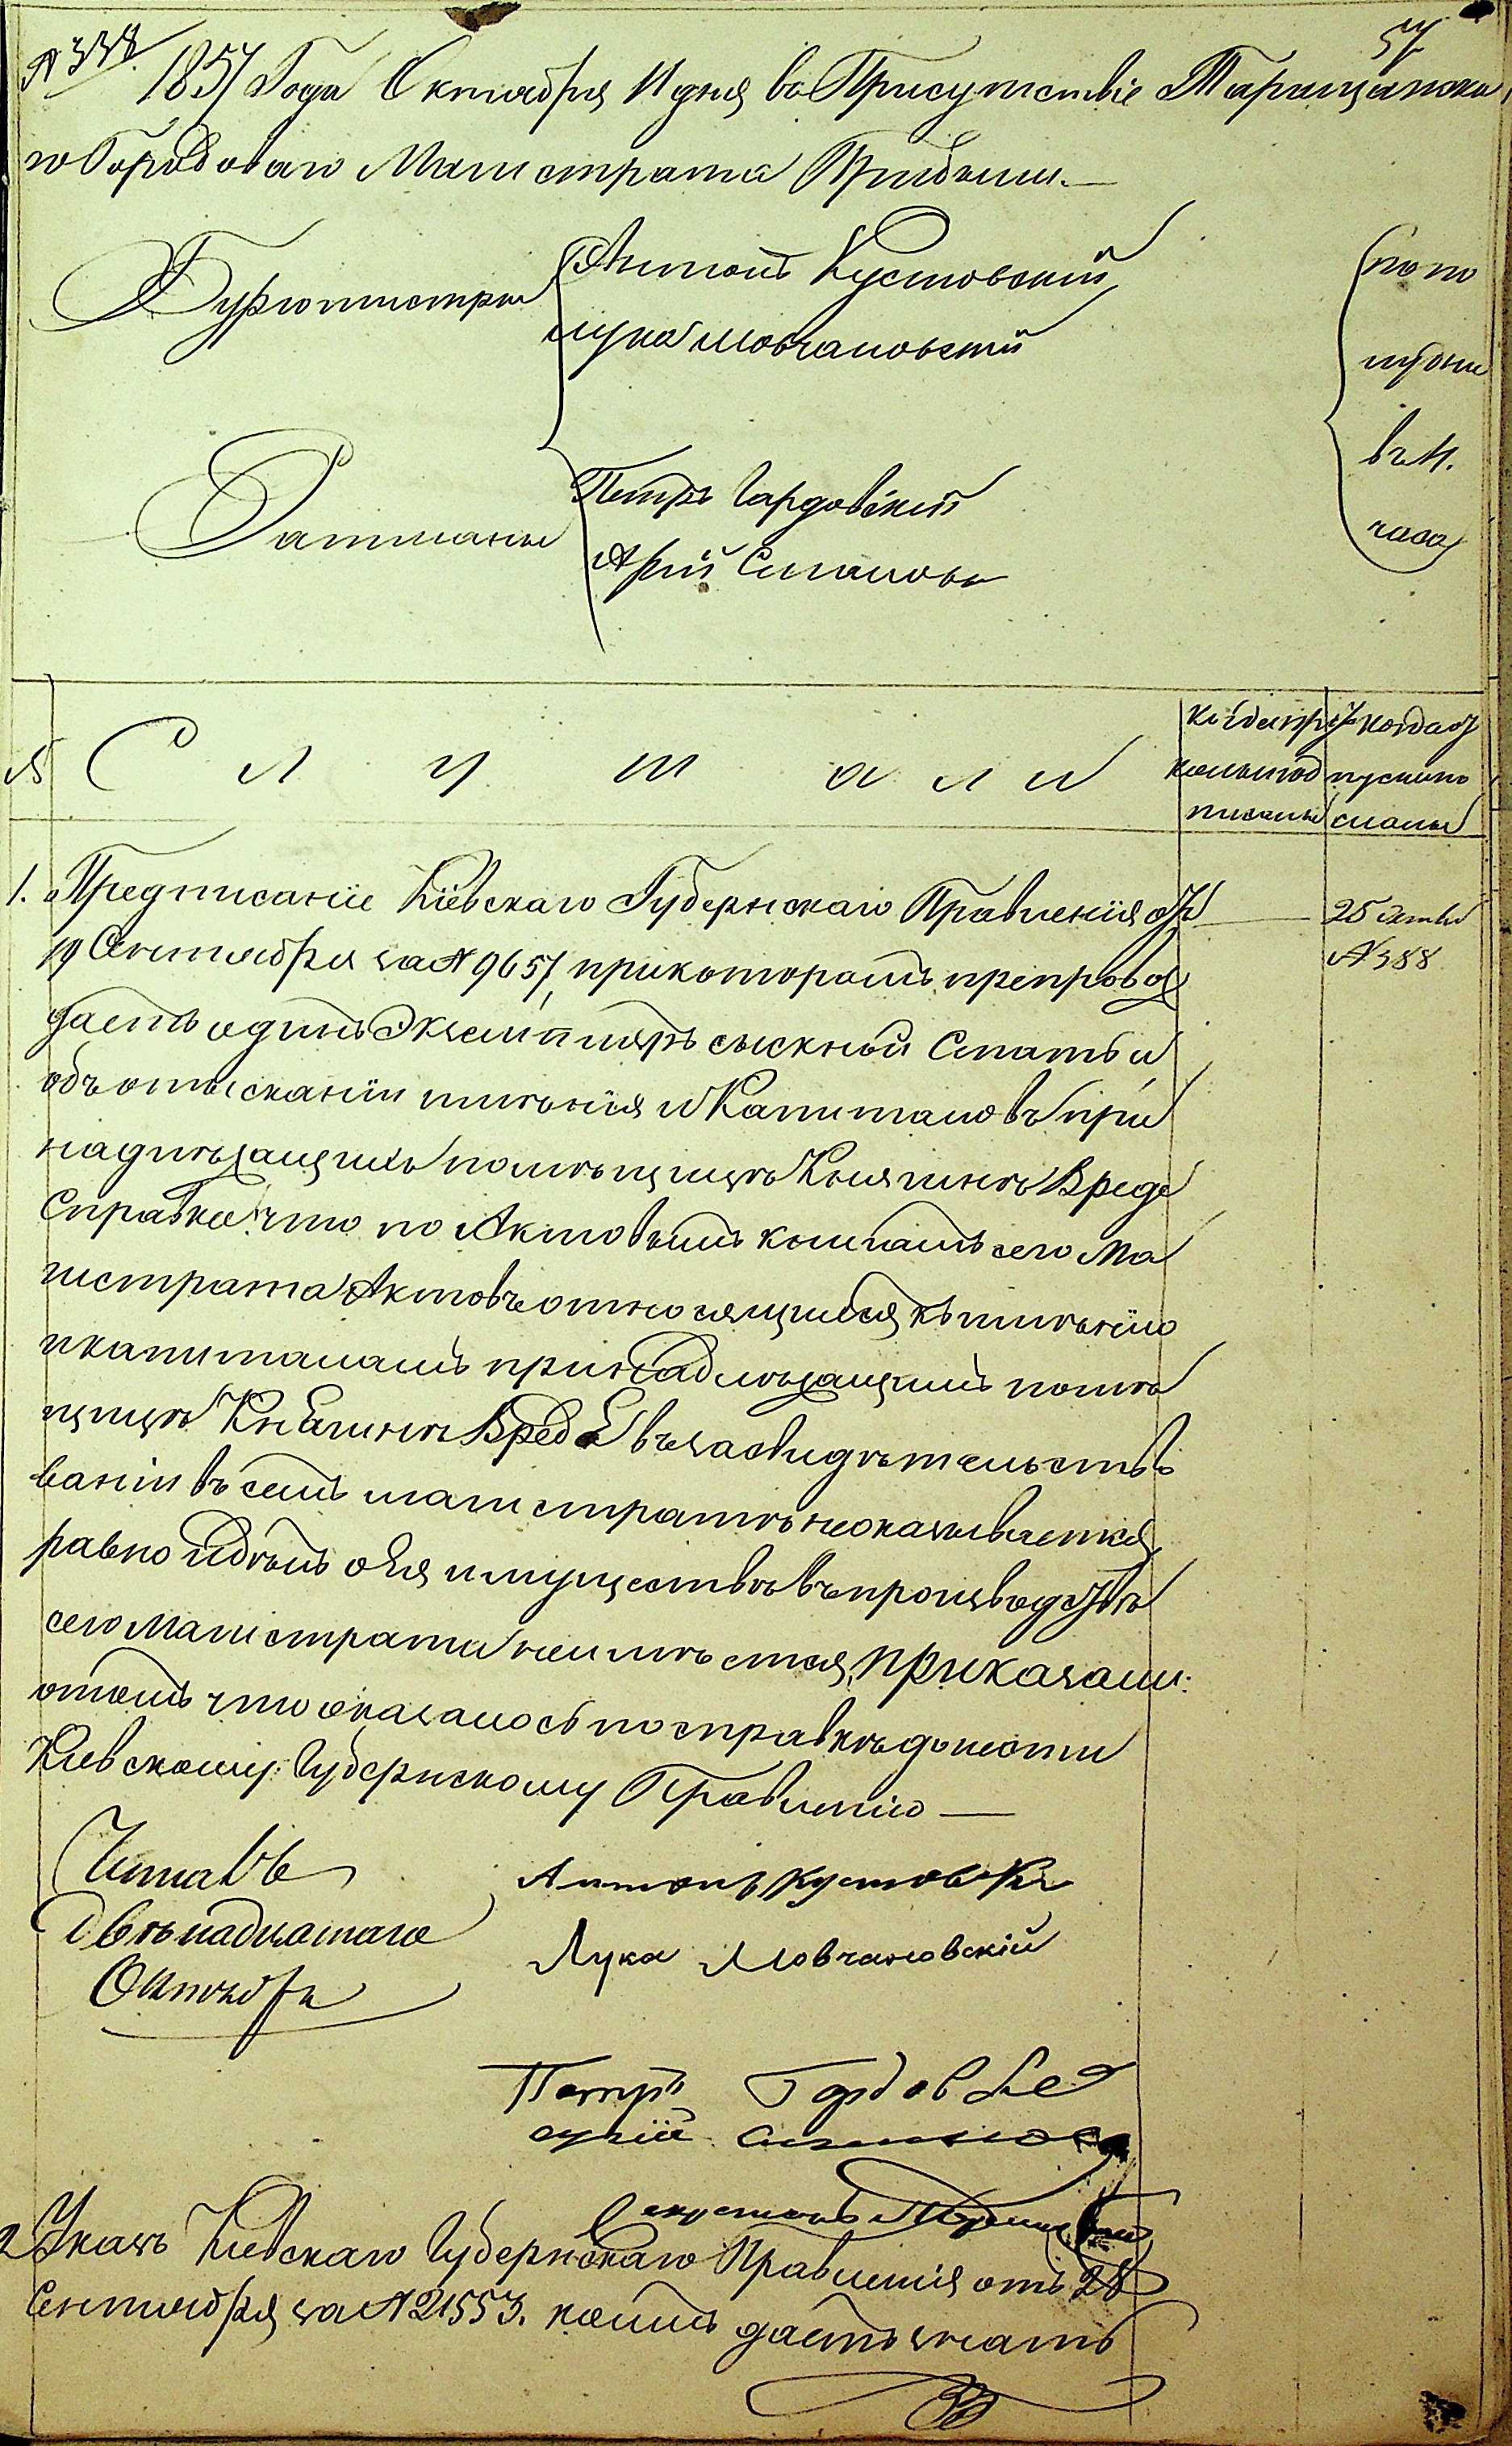 № 338.
57
1857 Года Октября 11 дня въ Присутствіе Таращанска
го Городоваго Магистрата Прибыли.—
Бургомистры
Антонъ Кустовскій
Лука Мовчановскій
Ратманы
Петръ Гардовскій
Арій
по по
лудни
въ 11.
часа
№
Слушали
когда пр
кольъ под
писаны
когда от
пущено
1. Предписаніе Кіевскаго Губернскаго Правленія отъ
19 Сентября за № 9657, прикоторомъ препровож
даетъ одинъ Экземпляръ сыскной Статьи
объ отысканіи имѣнія и Капиталовъ при
надлежащихъ помѣщицѣ Княгинѣ Вреде
Справка: что по Актовымъ книгамъ сего Ма
гистрата Актовъ относящихся къ имѣнію
и капиталамъ принадлежащимъ помѣ
щицѣ Княгинѣ Вреде въ засвидѣтельство
ваніи въ семъ магистратѣ неоказывается
равно и дѣлъ о Ея имуществѣ въ производствѣ
сего Магистрата неимѣется, приказали:
отомъ что оказалось по справкѣ донести
Кіевскому Губернскому Правленію —
25 Октяб
№ 388
Читалъ
Двѣнадцатаго
Октября
Антонъ Кустовскі
Лука Мовчановскій
Петръ Гордовске
Секретарь
2 Указъ Кіевскаго Губернскаго Правленія отъ 28
Сентября за № 21553. коимъ даетъ знать